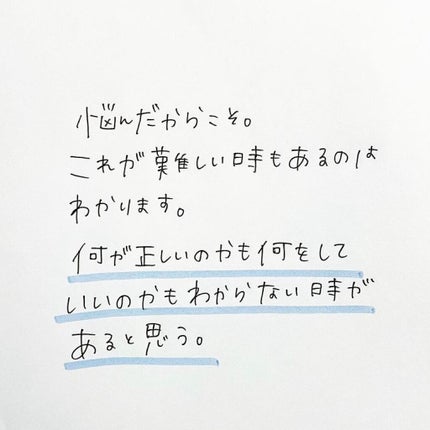 悩んだからこそ。
これが難しい時もあるのは
わかります。
何が正しいのかも何をして
いいのかもわからない時が
あると思う。